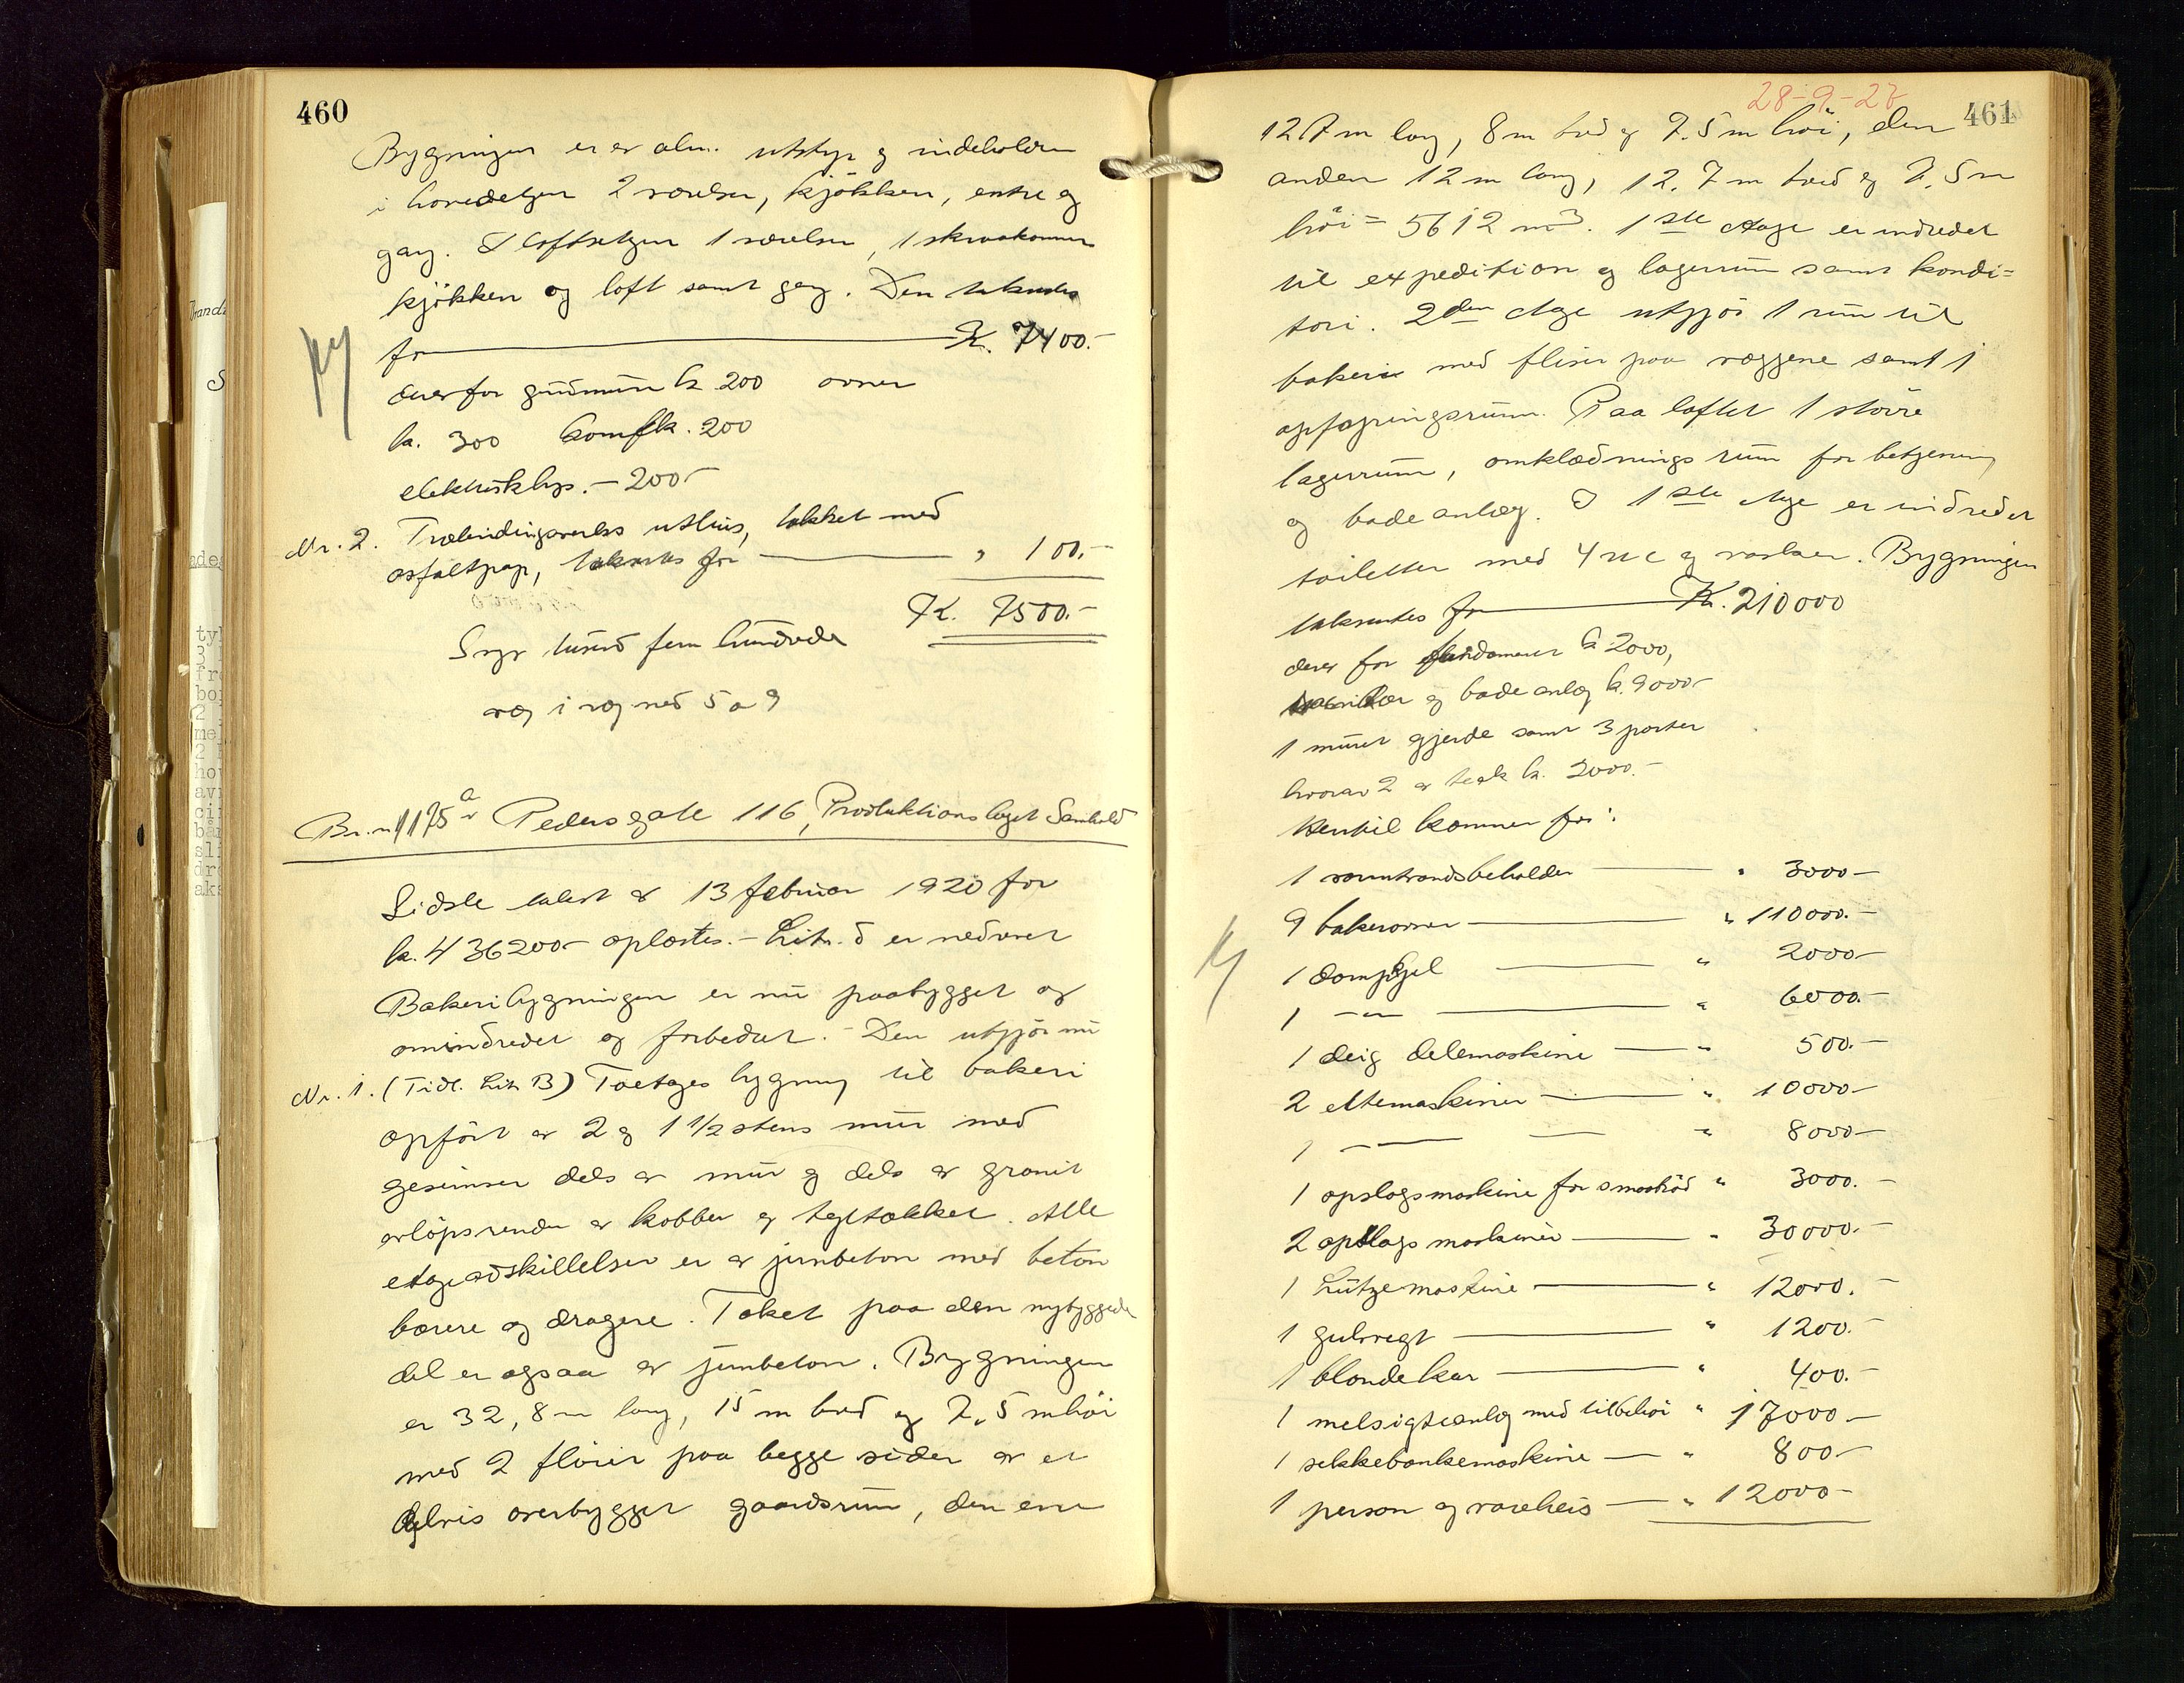 460
Bygningen er av alm. utstyr og indeholder
i hovedetagen 2 værelser, kjökken, entre og
gang. I loftsetagen 1 værelse, 1 skraakammer
kjökken og loft samt gang. Den takseres
for K. 7400.-
derav for grundmur kr 200 ovner
kr. 300 komf kr. 200
elektrisk lys. - 200 -
Nr. 2. Træbindingsverks uthus, tækket med
asfaltpap, takseres for " 100.-
K. 7500.-
Syv tusind fem hundrede
væg i væg med 5 a 9
Br. nr 1175a Pedersgate 116, Produktionslaget Samhold
Sidste takst av 13 februar 1920 for
kr. 436200- oplæstes. - Litr. d er nedrevet
Bakeribygningen er nu paabygget og
omindredet og forbedret. - Den utgjör nu
Nr. 1. (Tidl. Litr B) Toetages bygning til bakeri
opfört av 2 og 1 1/2 stens mur med
gesimser dels av mur og dels av granit
avlöpsrender av kobber og tegltækket. Alle
etageadskillelser er av jernbeton med beton
bærere og dragere. Taket paa den nybyggede
del er ogsaa av jernbeton. Bygningen
er 32,8 m lang, 15 m bred og 7.5 m höi
med 2 flöier paa begge sider av et
delvis overbygget gaardsrum, den ene
28-9-27
461
12.7 m lang, 8 m bred og 7.5 m höi, den
anden 12 m lang, 12.7 m bred og 7.5 m
höi = 5612 m3. 1ste etage er indredet
til expedition og lagerrum samt kondi=
tori. 2den etage utgjör 1 rum til
bakeri med fliser paa væggene samt 1
opfagningsrum. Paa loftet 1 större
lagerrum, omklædningsrum for betjening
og badeanlæg. I 1ste etage er indredet
toiletter med 4 wc og vasker. Bygningen
takseres for Kr. 210000
derav for fundament kr 2000,
og badeanlæg kr. 9000-
1 muret gjerde samt 3 porter
hvorav 2 av teak kr. 2000.-
Hertil kommer for:
1 varmtvandsbeholder " 3000-
9 bakerovner " 110000.-
1 dampkjel " 2000-
1 -"- " 6000.-
1 deig delemaskine " 500.-
2 eltemaskiner " 10000-
1 -"- " 8000-
1 opslagsmaskine for smaabröd " 3000.-
2 opslags maskiner " 30000.-
1 Lutzemaskine " 12000.-
1 gulvvegt " 1200.-
1 blandekar " 400.-
1 melsigteanlæg med tilbehör " 17000-
1 sekkebankemaskine " 800-
1 person og vareheis " 12000-